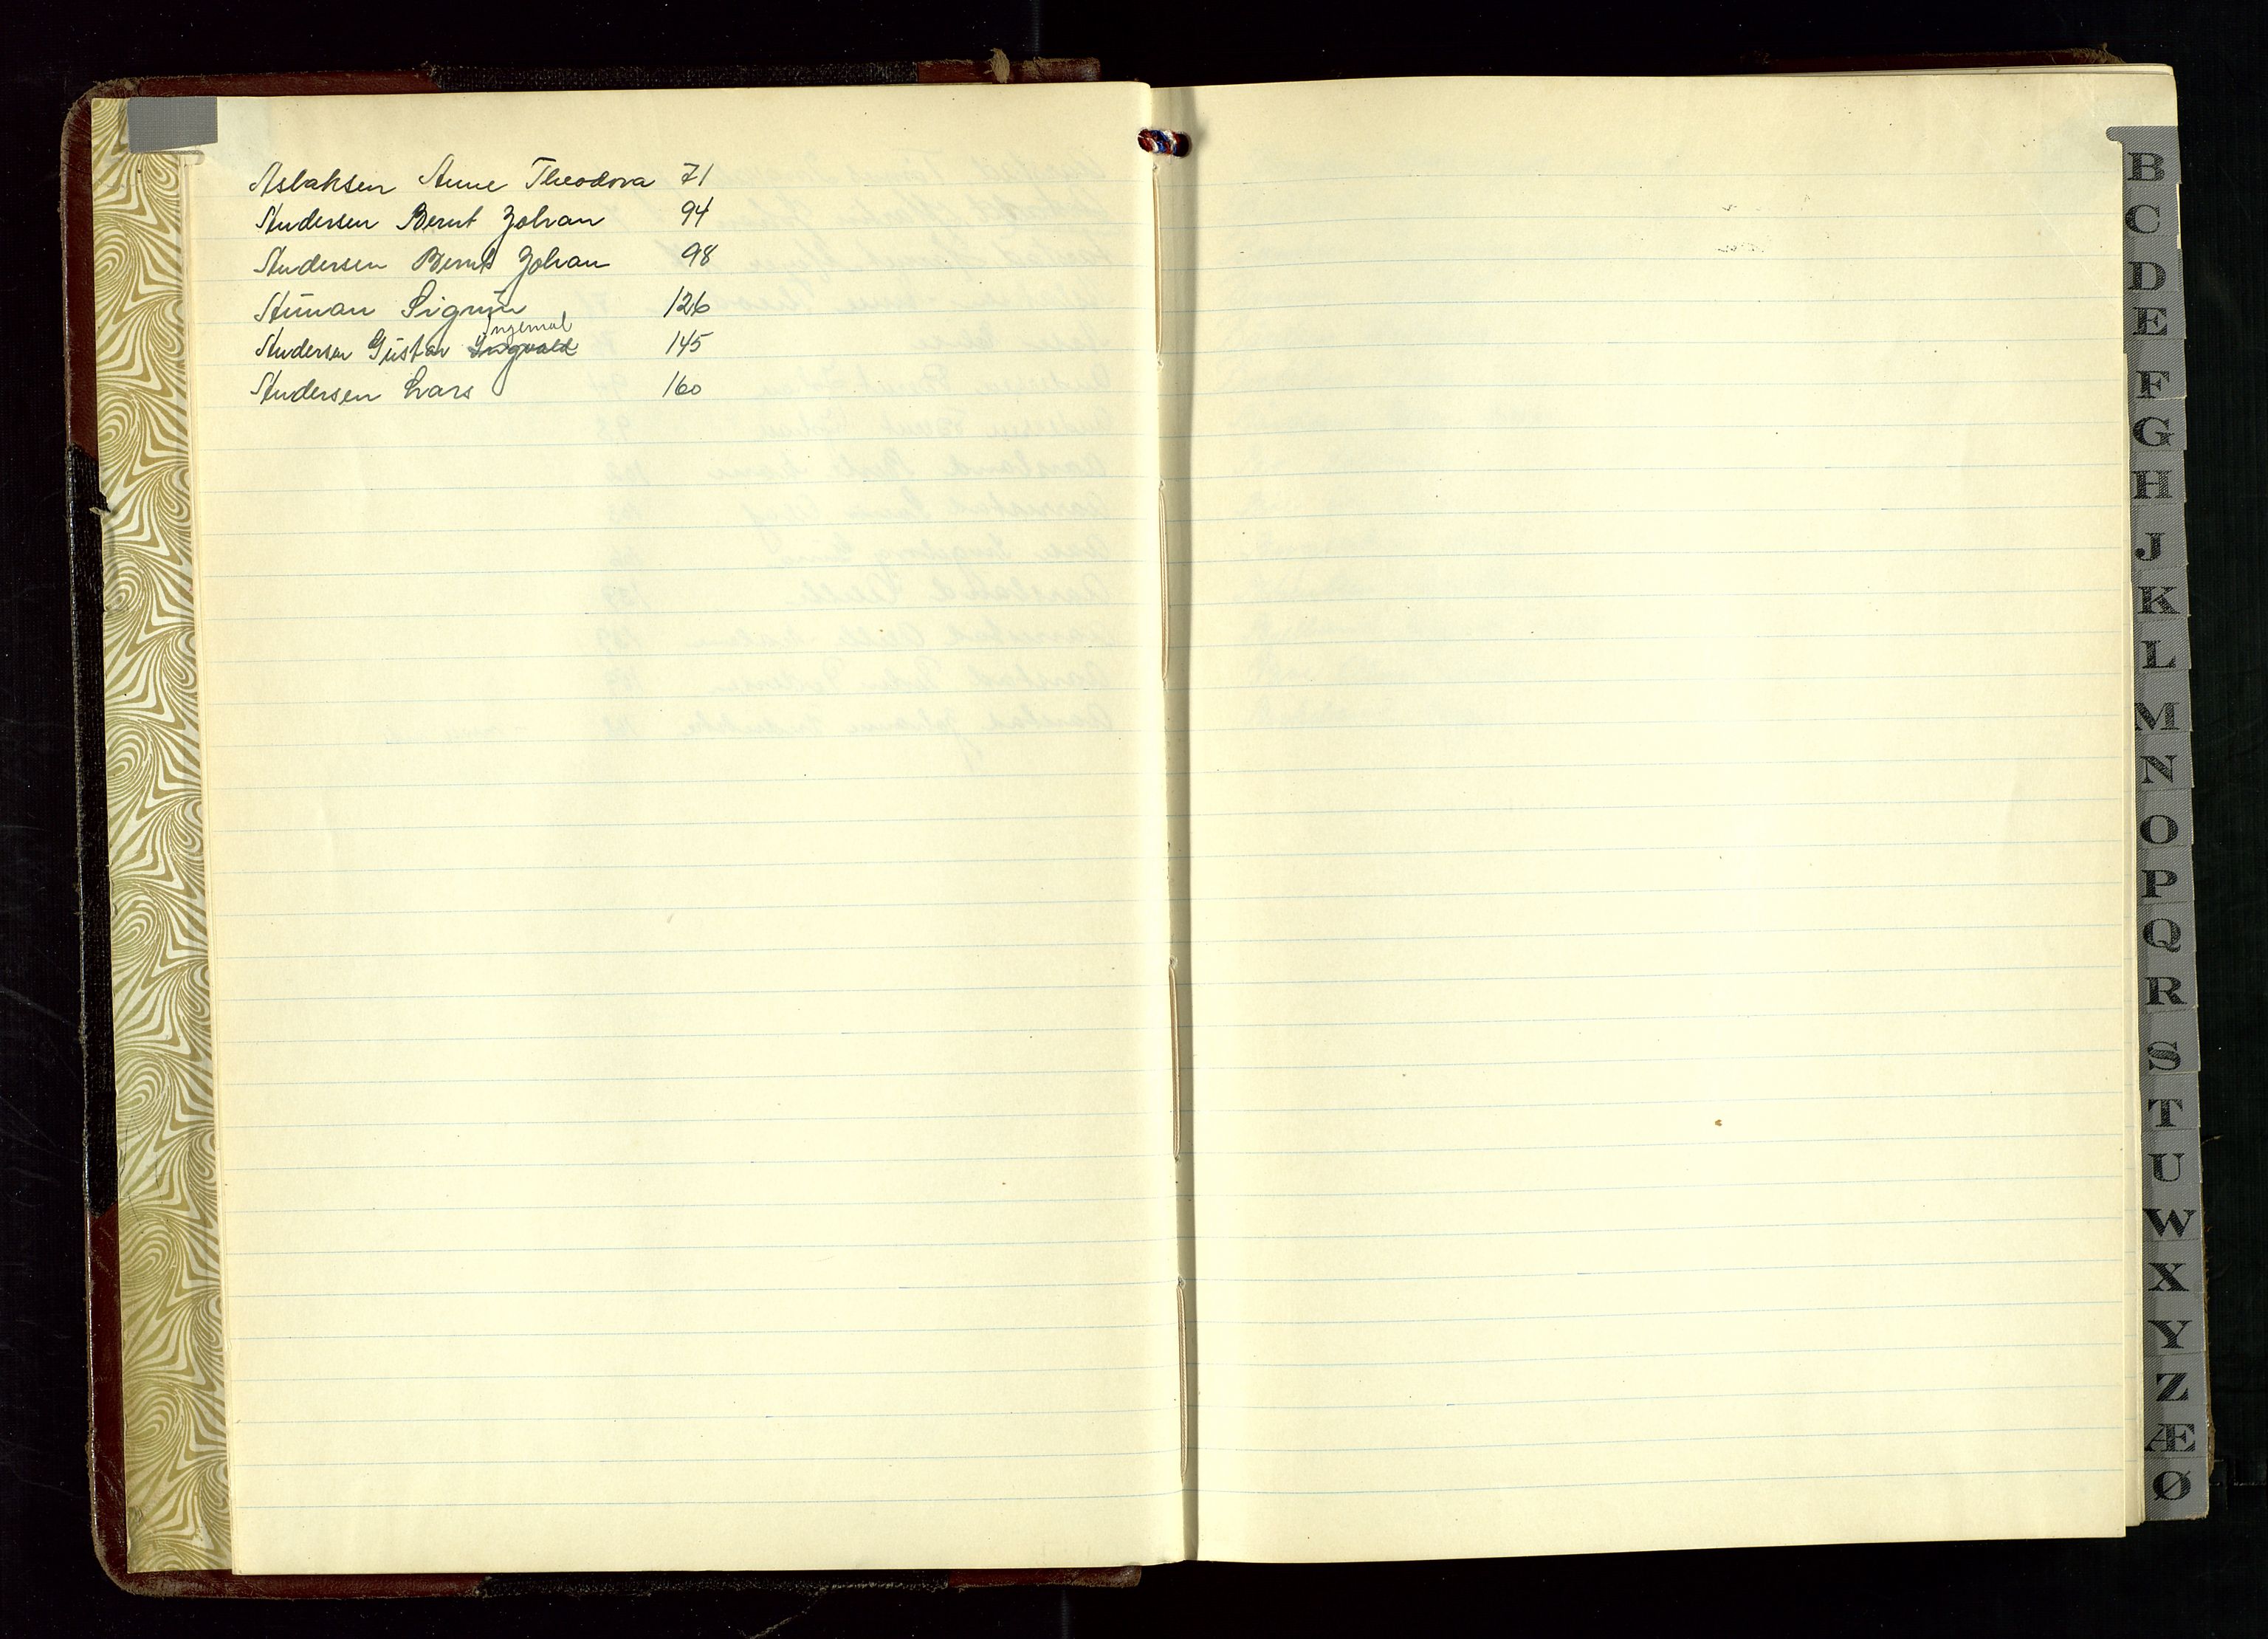 Aslaksen Anne Theodora 71
Andersen Bernt Johan 94
Andersen Bernt Johan 98
Aunan Sigrun 126
Ingemal
Andersen Gustav Ingvald 145
Andersen Lars 160
B
C
D
E
F
G
H
J
K
L
M
N
O
P
Q
R
S
T
U
W
X
Y
Z
Æ
Ø